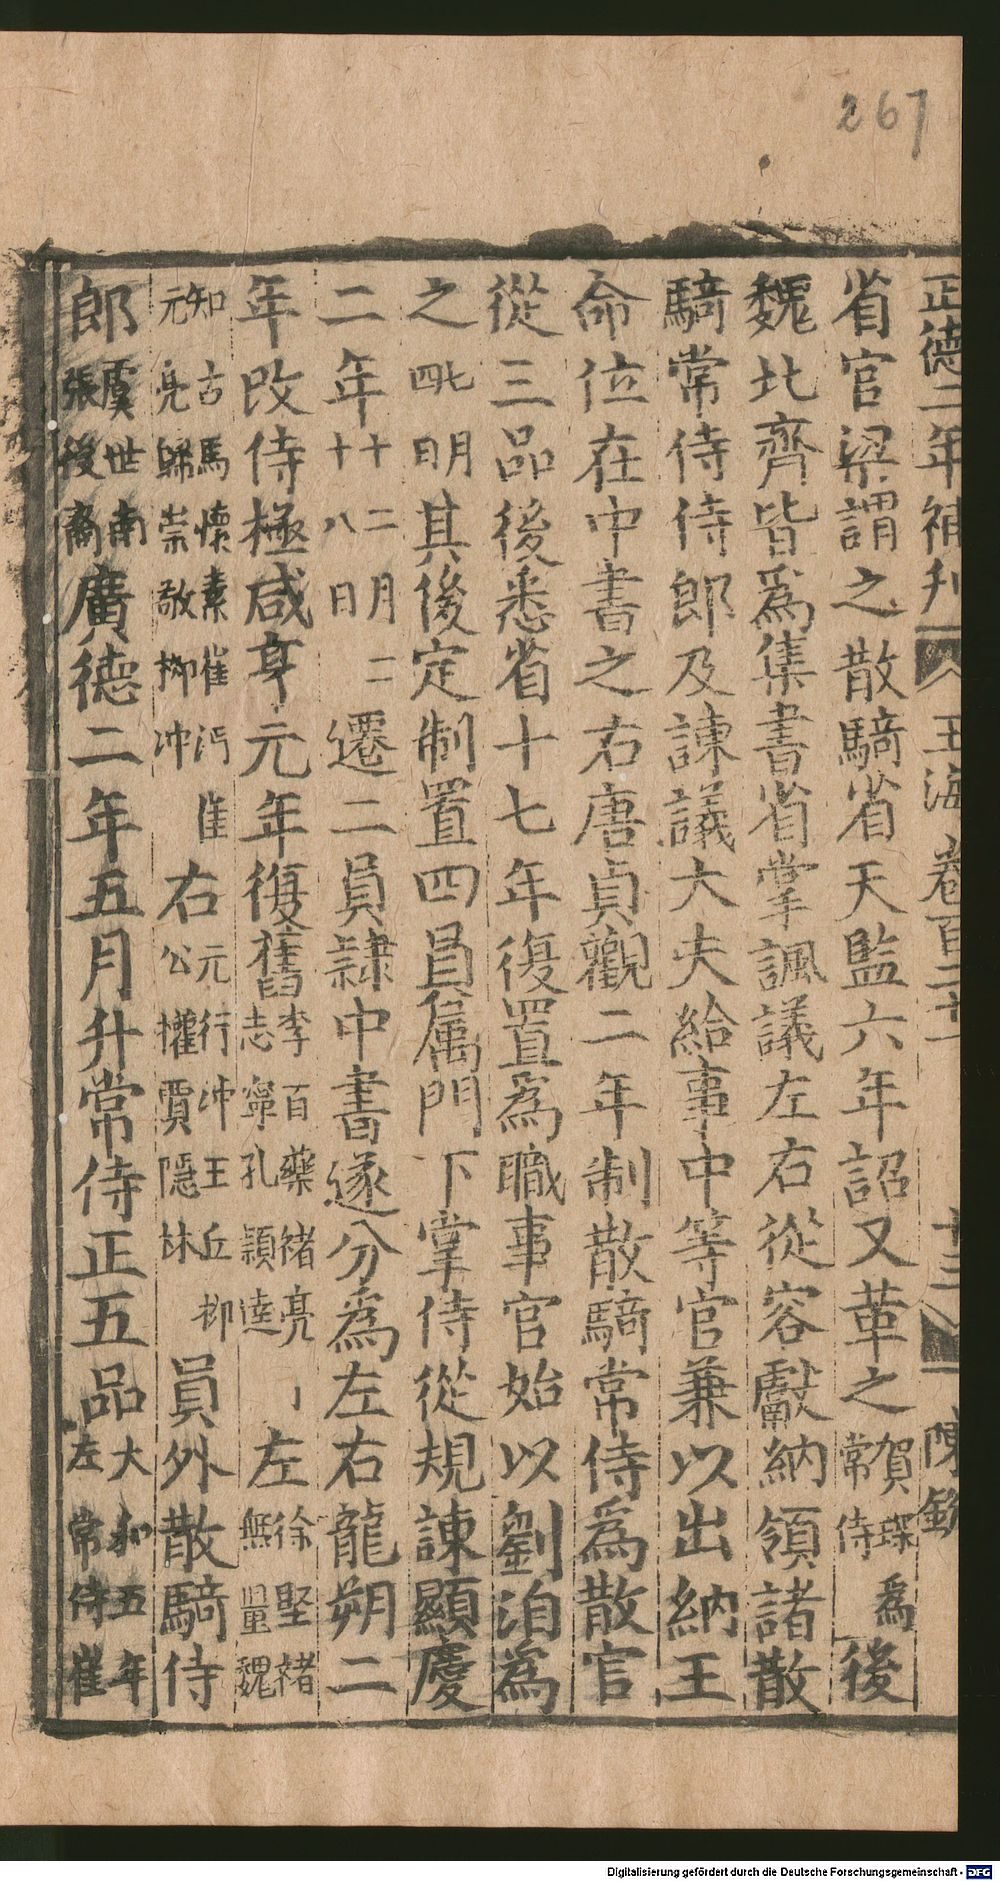 267
正德二年補刋 玉海卷百二十一 十三 陳欽
省官梁謂之散騎省天監六年詔又革之賀琛爲常侍後
魏北齊皆爲集書省掌諷議左右從容獻納領諸散
騎常侍侍郎及諫議大夫給事中等官兼以出納王
命位在中書之右唐貞觀二年制散騎常侍爲散官
從三品後悉省十七年復置爲職事官始以劉洎爲
之 其後定制置四員属門下掌侍從規諫顯慶
二年十二月二十八日遷二員隷中書遂分爲左右龍朔二
年改侍極咸亨元年復舊李百藥褚亮志寧孔穎逹左徐堅褚無量魏
知古馬懷素崔沔崔元亮歸崇敬柳冲右元行冲王丘柳公權賈隱林員外散騎侍
郎虞世南張後裔廣德二年五月升常侍正五品大和五年左常侍崔
Digitalisierung gefördert durch die Deutsche Forschungsgemeinschaft - DFG